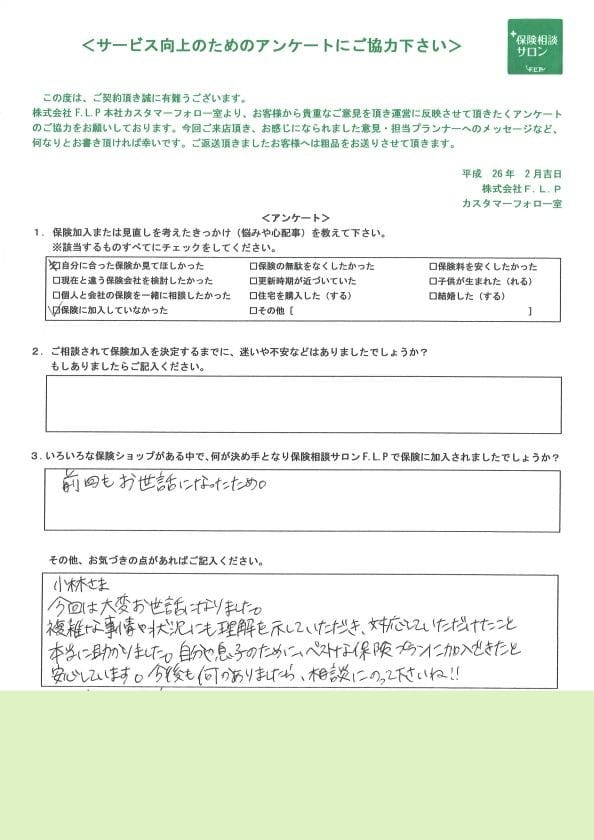 ＜サービス向上のためのアンケートにご協力下さい＞
+保険相談
サロン
F.L.P
この度は、ご契約頂き誠に有難うございます。
株式会社F.L.P本社カスタマーフォロー室より、お客様から貴重なご意見を頂き運営に反映させて頂きたくアンケート
のご協力をお願いしております。今回ご来店頂き、お感じになられました意見・担当プランナーへのメッセージなど、
何なりとお書き頂ければ幸いです。ご返送頂きましたお客様へは粗品をお送りさせて頂きます。
平成　26年　2月吉日
株式会社F.L.P
カスタマーフォロー室
＜アンケート＞
1．保険加入または見直しを考えたきっかけ（悩みや心配事）を教えて下さい。
※該当するものすべてにチェックをしてください。
☑自分に合った保険か見てほしかった　□保険の無駄をなくしたかった　□保険料を安くしたかった
□現在と違う保険会社を検討したかった　□更新時期が近づいていた　□子供が生まれた（れる）
□個人と会社の保険を一緒に相談したかった　□住宅を購入した（する）　□結婚した（する）
☑保険に加入していなかった　□その他［　　　］
2．ご相談されて保険加入を決定するまでに、迷いや不安などはありましたでしょうか？
もしありましたらご記入ください。
3．いろいろな保険ショップがある中で、何が決め手となり保険相談サロンF.L.Pで保険に加入されましたでしょうか？
前回もお世話になったため。
その他、お気づきの点があればご記入ください。
小林さま
今回は大変お世話になりました。
複雑な事情や状況にも理解を示していただき、対応していただけたこと
本当に助かりました。自分や息子のために、ベストな保険プランに加入できたと
安心しています。今後も何かありましたら、相談にのって下さいね!!